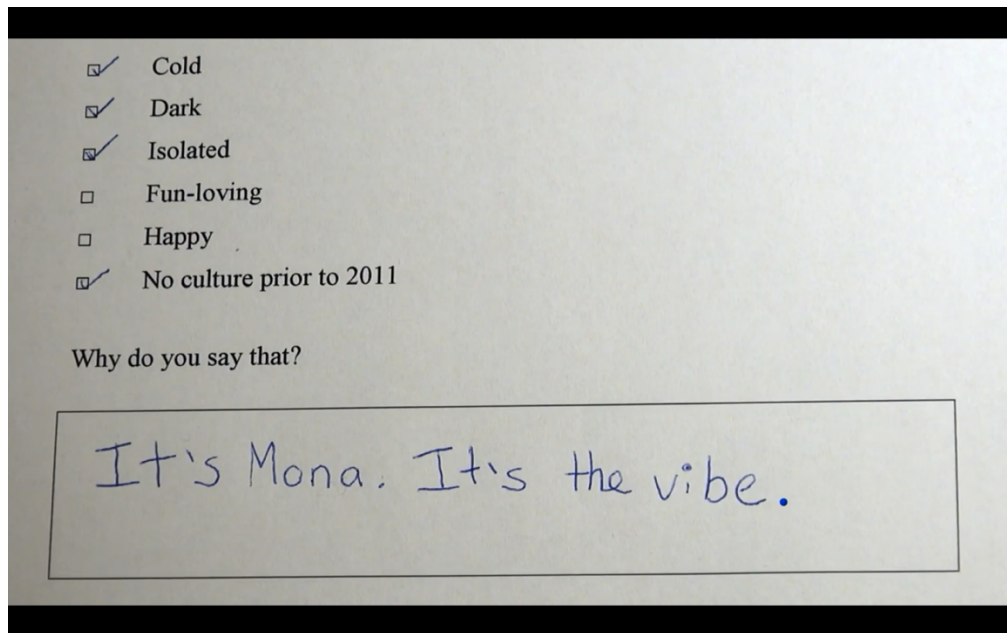 Cold
Dark
Isolated
Fun-loving
Happy
No culture prior to 2011
Why do you say that?
It's Mona. It's the vibe.